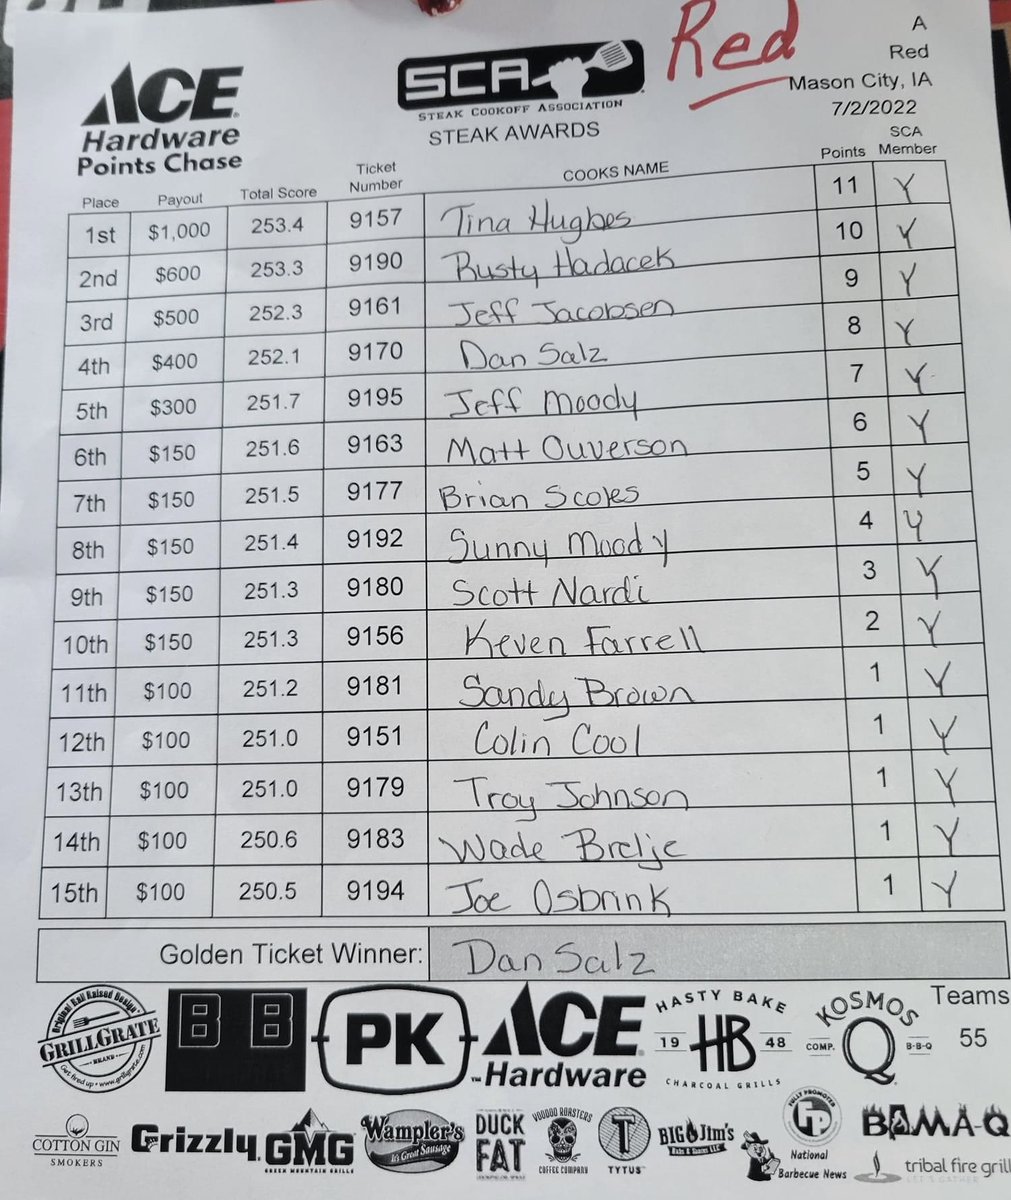 Red
A
Red
Mason City, IA
7/2/2022
ACE
Hardware
Points Chase
SCA
STEAK COOKOFF ASSOCIATION
STEAK AWARDS
Place Payout Total Score Ticket Number COOKS NAME Points SCA Member
1st $1,000 253.4 9157 Tina Hughes 11 Y
2nd $600 253.3 9190 Rusty Hadacek 10 Y
3rd $500 252.3 9161 Jeff Jacobsen 9 Y
4th $400 252.1 9170 Dan Salz 8 Y
5th $300 251.7 9195 Jeff Moody 7 Y
6th $150 251.6 9163 Matt Ouverson 6 Y
7th $150 251.5 9177 Brian Scoles 5 Y
8th $150 251.4 9192 Sunny Moody 4 Y
9th $150 251.3 9180 Scott Nardi 3 Y
10th $150 251.3 9156 Keven Farrell 2 Y
11th $100 251.2 9181 Sandy Brown 1 Y
12th $100 251.0 9151 Colin Cool 1 Y
13th $100 251.0 9179 Troy Johnson 1 Y
14th $100 250.6 9183 Wade Brelje 1 Y
15th $100 250.5 9194 Joe Osbrink 1 Y
Golden Ticket Winner: Dan Salz
Original Rail Raised Design
GRILLGRATE
BRAND
Get fired up • www.grillgrate.com
B B
PK
ACE
Hardware
HASTY BAKE
19 HB 48
CHARCOAL GRILLS
KOSMOS
COMP. Q B-B-Q
Teams
55
COTTON GIN
SMOKERS
Grizzly
GMG
GREEN MOUNTAIN GRILLS
Wampler's
It's Great Sausage
DUCK
FAT
VOODOO ROASTERS
COFFEE COMPANY
T
TYTUS
BIG Jim's
FULLY PROMOTED
FP
National
Barbecue News
BAMA-Q
tribal fire grill